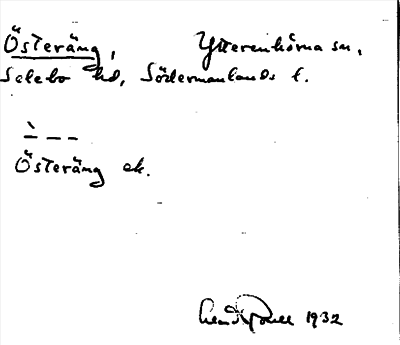 Österäng, Ytterenhörna sn,
Selebo hd, Södermanlands l.
` _ _ _
Österäng ek.
1932